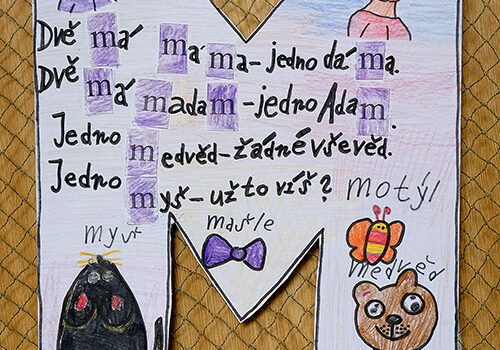 Dvě má máma-jedno dáma.
Dvě má madam-jedno Adam.
Jedno medvěd-žádné vševěd.
Jedno myš-už to víš?
motýl
myš
mašle
medvěd